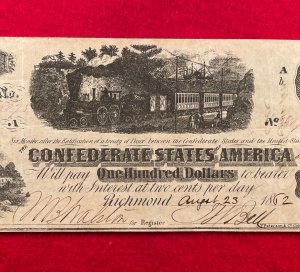 A
No.
A
Six Months after the Ratification of a treaty of Peace between the Confederate States and the United St
CONFEDERATE STATES AMERICA
Will pay One Hundred Dollars to bearer
with Interest at two cents per day
Richmond August 23 1862
for Register